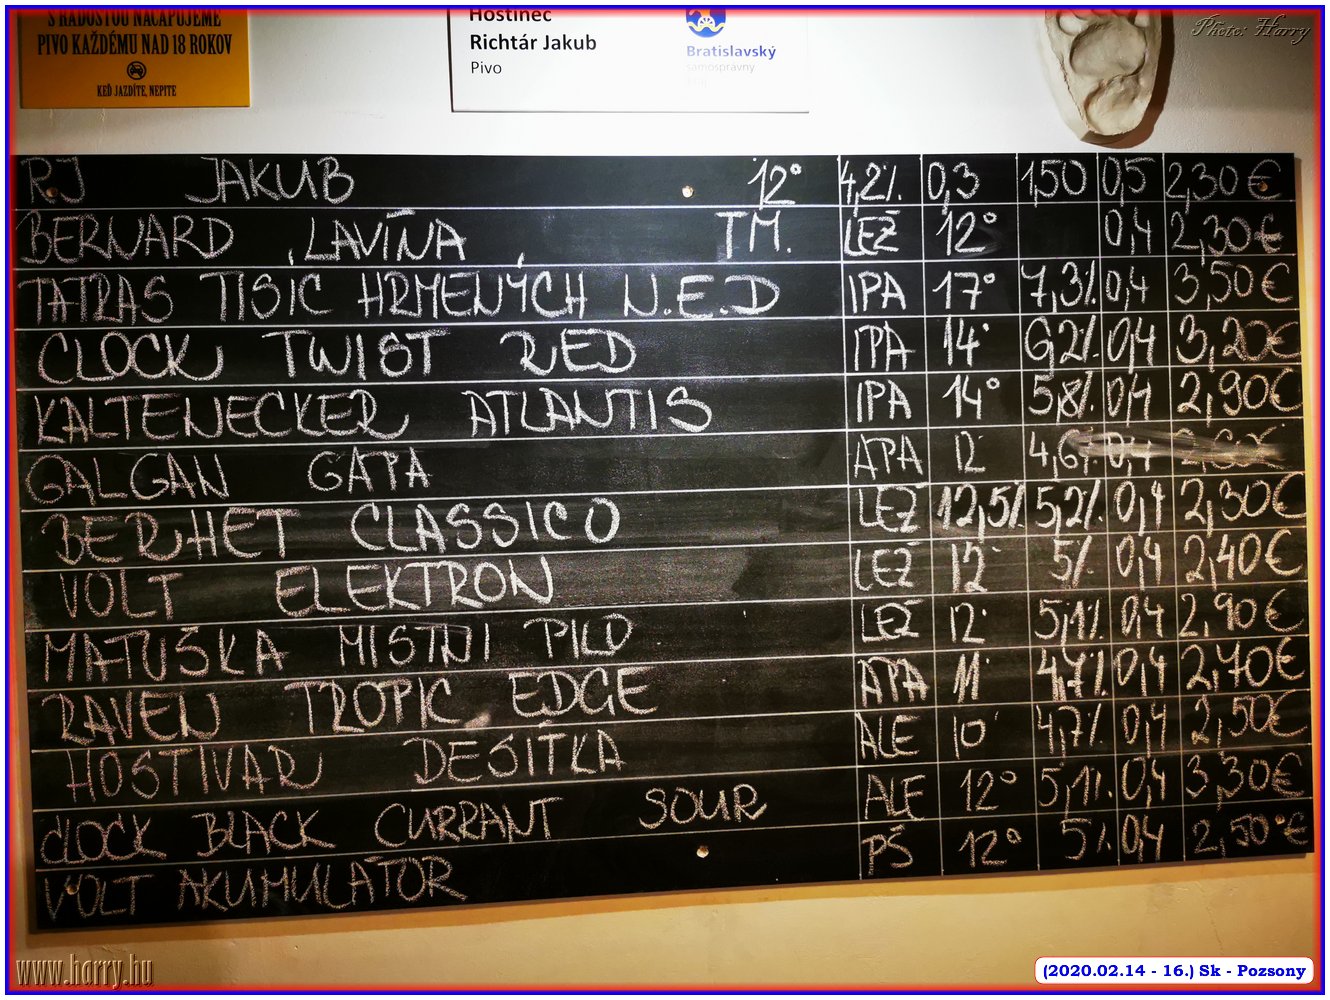 S RADOSŤOU NAČAPUJEME
PIVO KAŽDÉMU NAD 18 ROKOV
KEĎ JAZDÍTE, NEPITE
Hostinec
Richtár Jakub
Pivo
Bratislavský
samosprávny
kraj
Photo: Harry
RJ JAKUB 12° 4,2% 0,3 1,50 0,5 2,30€
BERNARD "LAVÍNA" TM. LEŽ 12° 0,4 2,30€
TATRAS TISÍC HRMENÝCH N.E.D IPA 17° 7,3% 0,4 3,50€
CLOCK TWIST RED IPA 14° 6,2% 0,4 3,20€
KALTENECKER ATLANTIS IPA 14° 5,8% 0,4 2,90€
GALGAN GAPA APA 12° 4,6% 0,4
BERHET CLASSICO LEŽ 12,5% 5,2% 0,4 2,30€
VOLT ELEKTRON LEŽ 12° 5% 0,4 2,40€
MATUŠKA MISTNI PILO LEŽ 12° 5,1% 0,4 2,90€
RAVEN TROPIC EDGE APA 11° 4,7% 0,4 2,70€
HOSTIVAR DESÍTKA ALE 10° 4,7% 0,4 2,50€
CLOCK BLACK CURRANT SOUR ALE 12° 5,1% 0,4 3,30€
VOLT AKUMULÁTOR PŠ 12° 5% 0,4 2,50€
www.harry.hu
(2020.02.14 - 16.) Sk - Pozsony